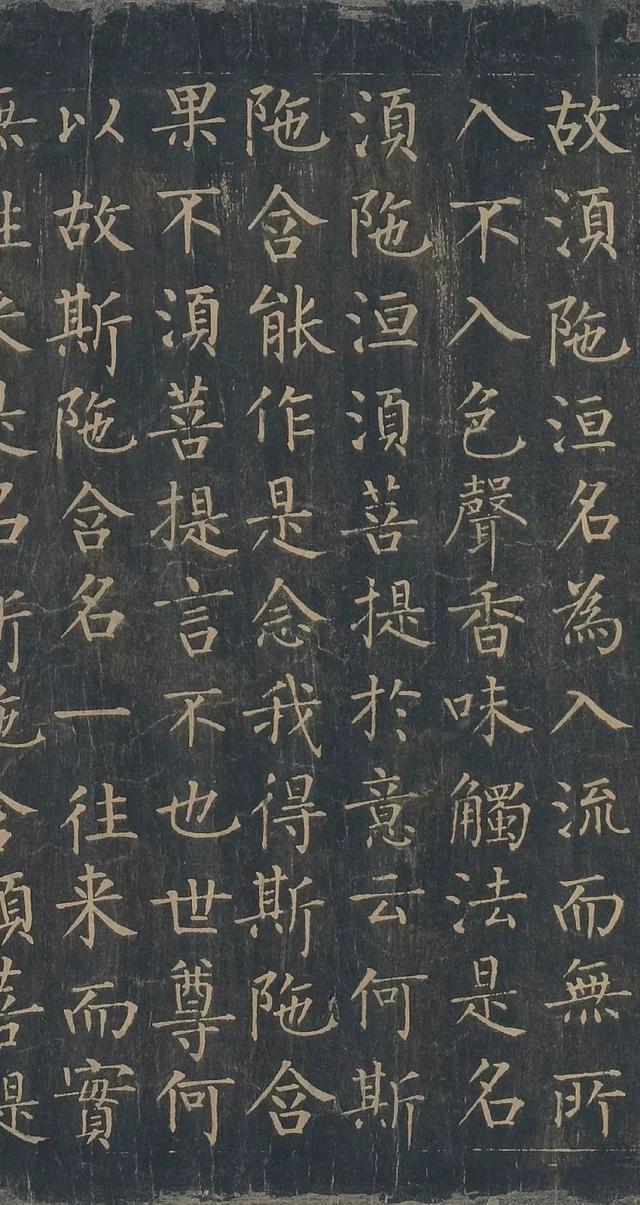 故湏陁洹名為入流而無所
入不入色聲香味觸法是名
湏陁洹湏菩提於意云何斯
陁含能作是念我得斯陁含
果不湏菩提言不也世尊何
以故斯陁含名一往来而實
無往来是名斯陁含湏菩提